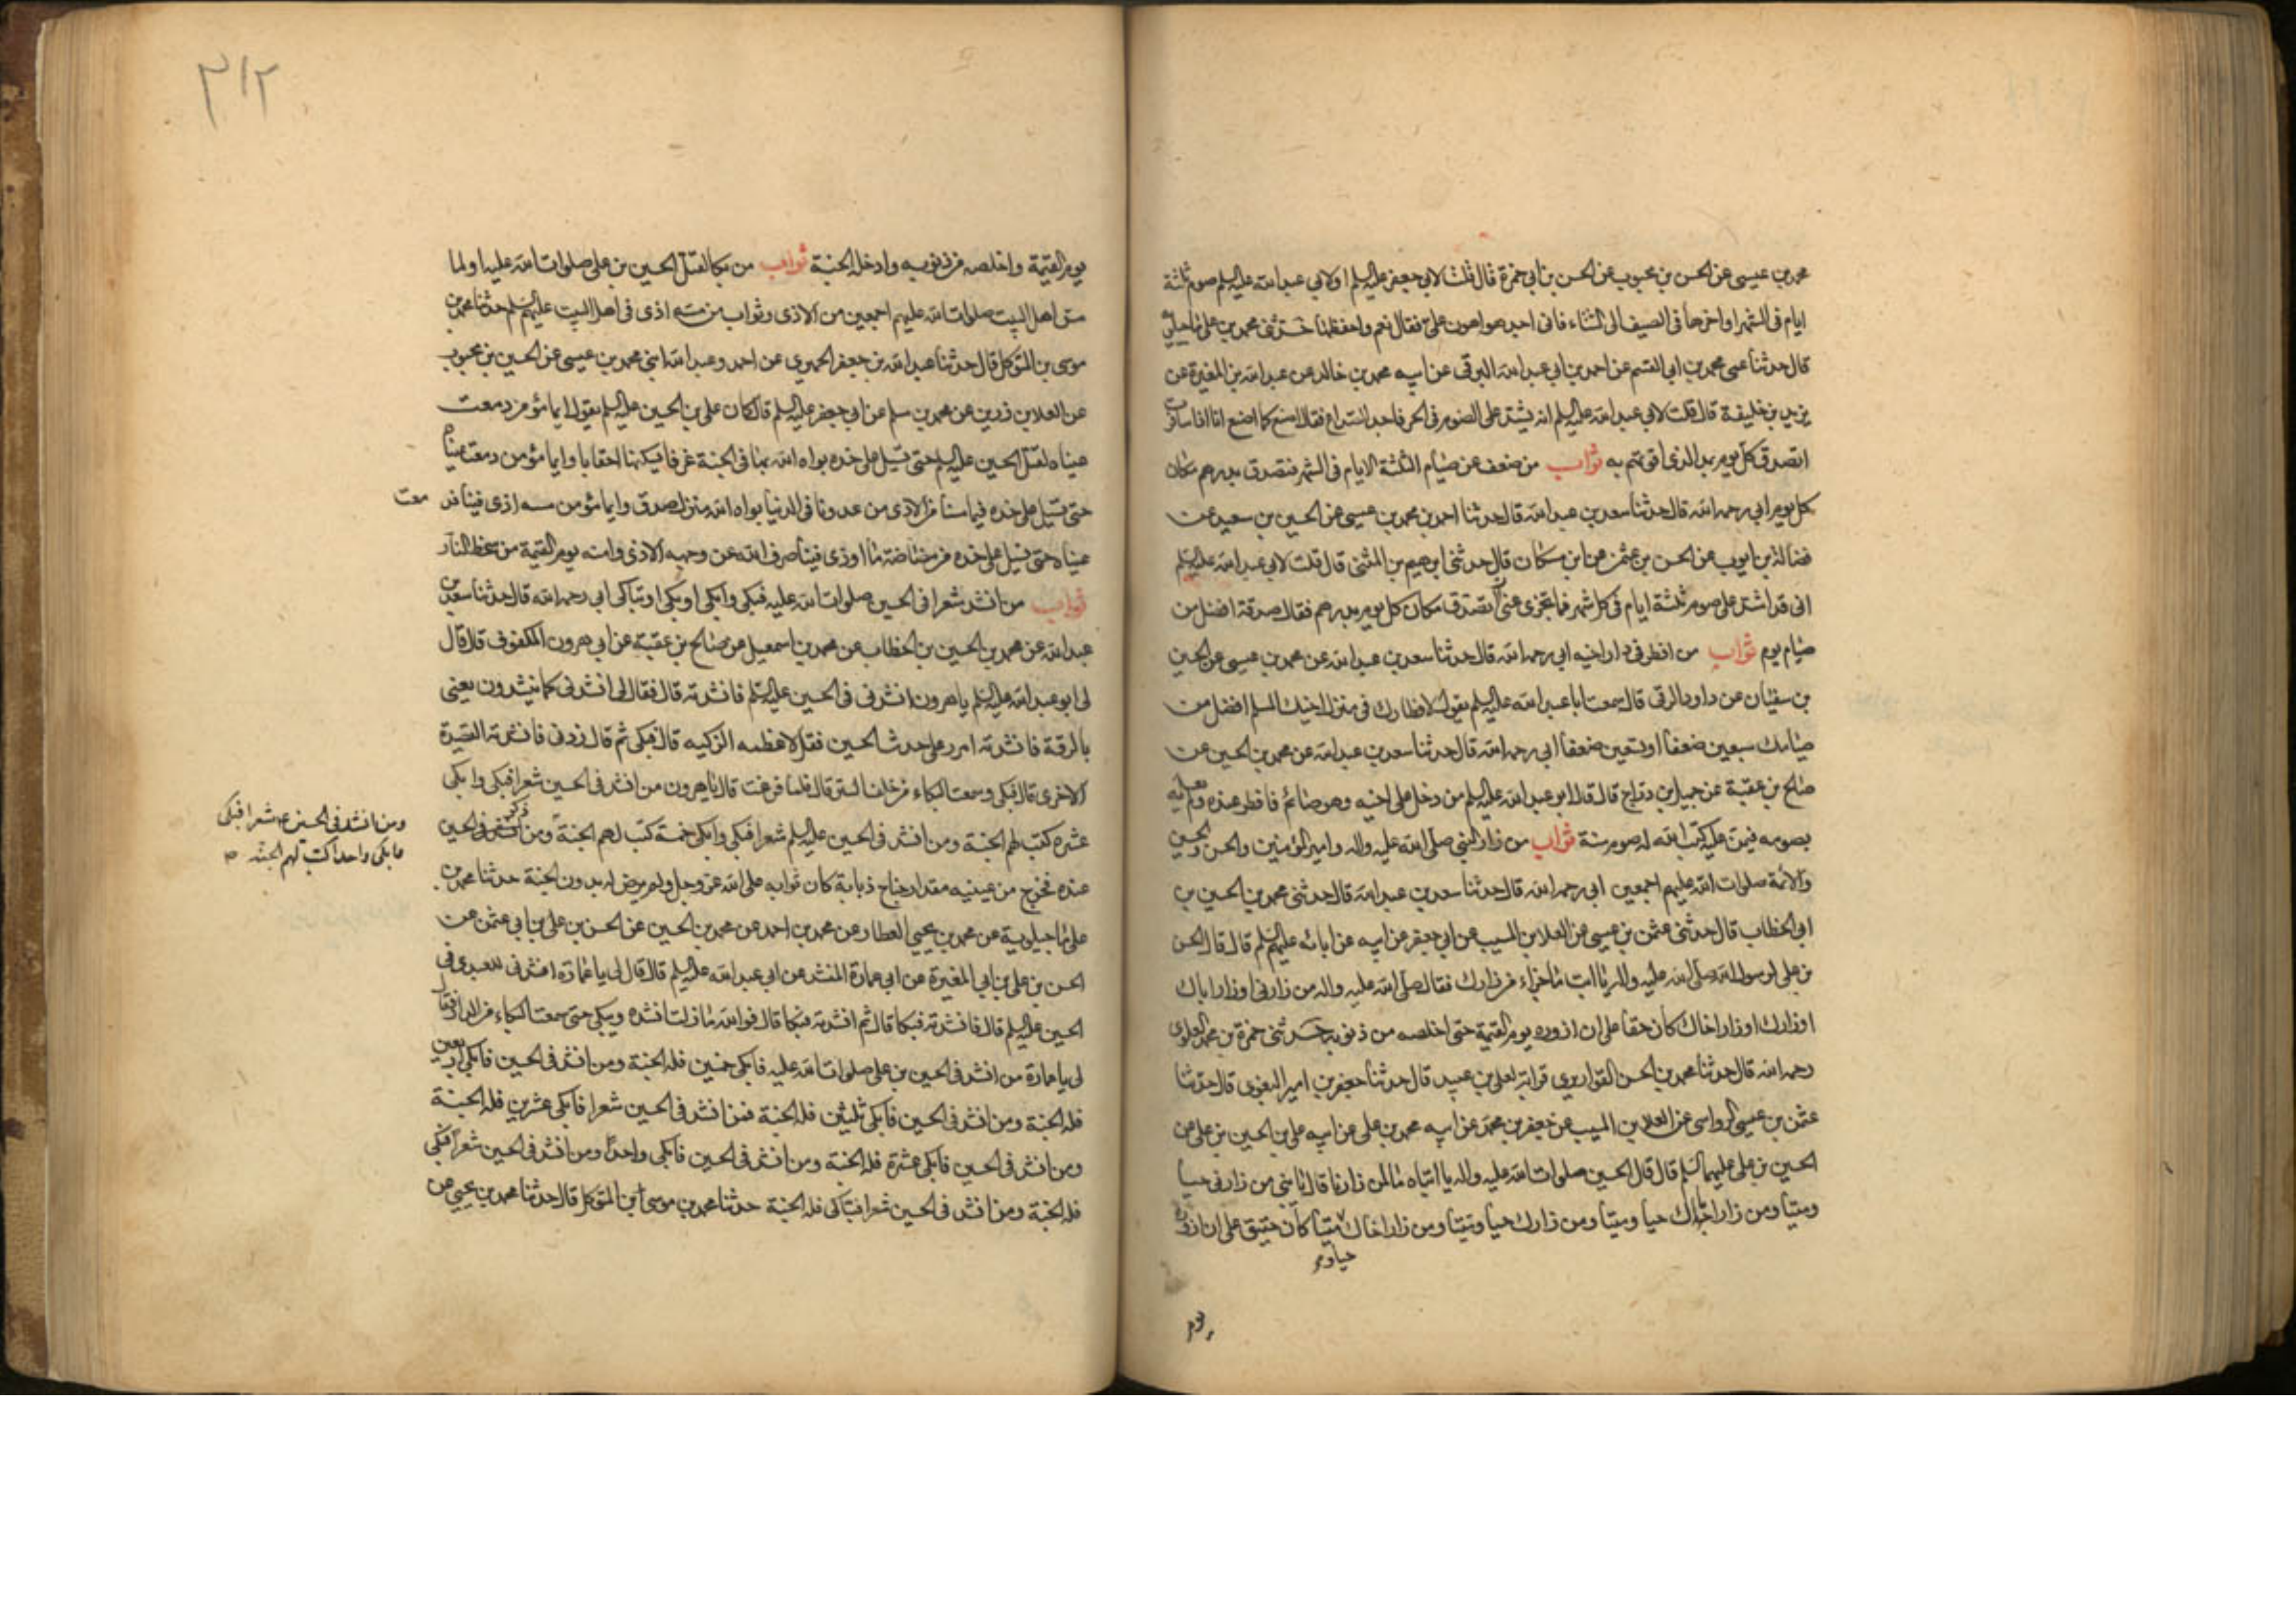 محمد بن عيسى عن الحسن بن محبوب عن الحسن بن ابي حمزة قال قلت لابي جعفر عليه السلم او لابي عبد الله عليه السلم صوم ثلثة
ايام في الشهر اواخرها في الصيف الى الشتاء فاني اجده اهون على فقال نعم واحفظها حدثني محمد بن علي ماجيلويه
قال حدثنا عمى محمد بن ابي القسم عن احمد بن ابي عبد الله البرقي عن ابيه محمد بن خالد عن عبد الله بن المغيرة عن
يزيد بن خليفة قال قلت لابي عبد الله عليه السلم انه يشتد على الصوم في الحر فاجد الصداع فقال اصنع كما اصنع انا اذا سافرت
اتصدق كل يوم بمد الذي اقوتهم به ثواب من ضعف عن صيام الثلثة الايام في الشهر فتصدق بدرهم مكان
كل يوم ابي رحمه الله قال حدثنا سعد بن عبد الله قال حدثنا احمد بن محمد بن عيسى عن الحسين بن سعيد عن
فضالة بن ايوب عن الحسن بن عثمن عن ابن مسكان قال حدثني ابرهيم بن المثنى قال قلت لابي عبد الله عليه السلم
انى قد اشتد على صوم ثلثة ايام في كل شهر فما يجزى عنى ان اتصدق مكان كل يوم بدرهم فقال صدقة افضل من
صيام يوم ثواب من افطر في دار اخيه ابي رحمه الله قال حدثنا سعد بن عبد الله عن محمد بن عيسى عن الحسين
بن سفيان عن داود الرقى قال سمعت ابا عبد الله عليه السلم يقول لافطارك في منزل اخيك المسلم افضل من
صيامك سبعين ضعفا او تسعين ضعفا ابي رحمه الله قال حدثنا سعد بن عبد الله عن محمد بن الحسين عن
صالح بن عقبة عن جميل بن دراج قال قال ابو عبد الله عليه السلم من دخل على اخيه وهو صائم فافطر عنده ولم يعلمه
بصومه فيمن عليه كتب الله له صوم سنة ثواب من زار النبي صلى الله عليه واله وامير المؤمنين والحسن والحسين
والائمة صلوات الله عليهم اجمعين ابي رحمه الله قال حدثنا سعد بن عبد الله قال حدثني محمد بن الحسين بن
ابي الخطاب قال حدثني عثمن بن عيسى عن العلا بن المسيب عن ابي جعفر عن ابيه عن ابائه عليهم السلم قال قال الحسن
بن علي لرسول الله صلى الله عليه واله يا ابت ما جزاء من زارك فقال صلى الله عليه واله من زارني او زار اباك
او زارك او زار اخاك كان حقا على ان ازوره يوم القيمة حتى اخلصه من ذنوبه حدثني حمزة بن محمد العلوي
رحمه الله قال حدثنا محمد بن الحسن القواريري قرابة لعلى بن عبيد قال حدثنا جعفر بن امير البغوى قال حدثنا
عثمن بن عيسى الرواسى عن العلا بن المسيب عن جعفر بن محمد عن ابيه محمد بن على عن ابيه على بن الحسين بن على عن
الحسين بن على عليهما السلم قال قال الحسين صلوات الله عليه واله يا ابتاه ما لمن زارنا قال يا بنى من زارنى حيا
وميتا ومن زار اباك حيا وميتا ومن زارك حيا وميتا ومن زار اخاك ميتا كان حقيق على ان ازوره
حيا و
يوم
٣١٢
يوم القيمة واخلصه من ذنوبه وادخله الجنة ثواب من بكا لقتل الحسين بن علي صلوات الله عليه او لما
مس اهل البيت صلوات الله عليهم اجمعين من الاذى وثواب من مسه اذى في اهل البيت عليهم السلم حدثنا محمد بن
موسى بن المتوكل قال حدثنا عبد الله بن جعفر الحميرى عن احمد وعبد الله ابنى محمد بن عيسى عن الحسين بن محبوب
عن العلا بن رزين عن محمد بن مسلم عن ابي جعفر عليه السلم قال كان علي بن الحسين عليه السلم يقول ايما مؤمن دمعت
عيناه لقتل الحسين عليه السلم حتى تسيل على خده بواه الله بها في الجنة غرفا يسكنها احقابا وايما مؤمن دمعت عيناه
حتى تسيل على خده فيما مسنا من الاذى من عدونا في الدنيا بواه الله منزل صدق وايما مؤمن مسه اذى فينا فد
معت
عيناه حتى تسيل على خده من مضاضة ما اوذى فينا صرف الله عن وجهه الاذى وامنه يوم القيمة من سخط النار
ثواب من انشد شعرا في الحسين صلوات الله عليه فبكى وابكى او بكى او تباكى ابي رحمه الله قال حدثنا سعد بن
عبد الله عن محمد بن الحسين بن الخطاب عن محمد بن اسمعيل عن صالح بن عقبة عن ابي هرون المكفوف قال قال
لى ابو عبد الله عليه السلم يا هرون انشدنى في الحسين عليه السلم فانشدته قال فقال لى انشدنى كما ينشدون يعنى
بالرقة فانشدته امرر على جدث الحسين فقل لاعظمه الزكيه قال فبكى ثم قال زدنى فانشدته القصيدة
الاخرى قال فبكى وسمعت البكاء من خلف الستر قال فلما فرغت قال يا هرون من انشد في الحسين شعرا فبكى وابكى
عشره كتب لهم الجنة ومن انشد في الحسين عليه السلم شعرا فبكى وابكى خمسة كتب لهم الجنة ومن ذكر الحسين
ومن انشد في الحسين ع شعرا فبكى
فابكى واحدا كتب لهم الجنة
عنده فخرج من عينيه مقدار جناح ذبابة كان ثوابه على الله عز وجل ولم يرض له بدون الجنة حدثنا محمد بن
على ماجيلوية عن محمد بن يحيى العطار عن محمد بن احمد عن محمد بن الحسين عن الحسن بن على بن ابي عثمن عن
الحسن بن على بن ابي المغيرة عن ابي عمارة المنشد عن ابي عبد الله عليه السلم قال قال لى يا عمارة انشدنى للعبدى في
الحسين عليه السلم قال فانشدته فبكا قال ثم انشدته فبكا قال فوالله ما زلت انشده ويبكى حتى سمعت البكاء من الدار فقال
لى يا عمارة من انشد في الحسين بن على صلوات الله عليه فابكى خمسين فله الجنة ومن انشد في الحسين فابكى اربعين
فله الجنة ومن انشد في الحسين فابكى ثلثين فله الجنة فمن انشد في الحسين شعرا فابكى عشرين فله الجنة
ومن انشد في الحسين فابكى عشرة فله الجنة ومن انشد في الحسين فابكى واحدا ومن انشد في الحسين شعرا فبكى
فله الجنة ومن انشد في الحسين شعرا فتباكى فله الجنة حدثنا محمد بن موسى ابن المتوكل قال حدثنا محمد بن يحيى عن